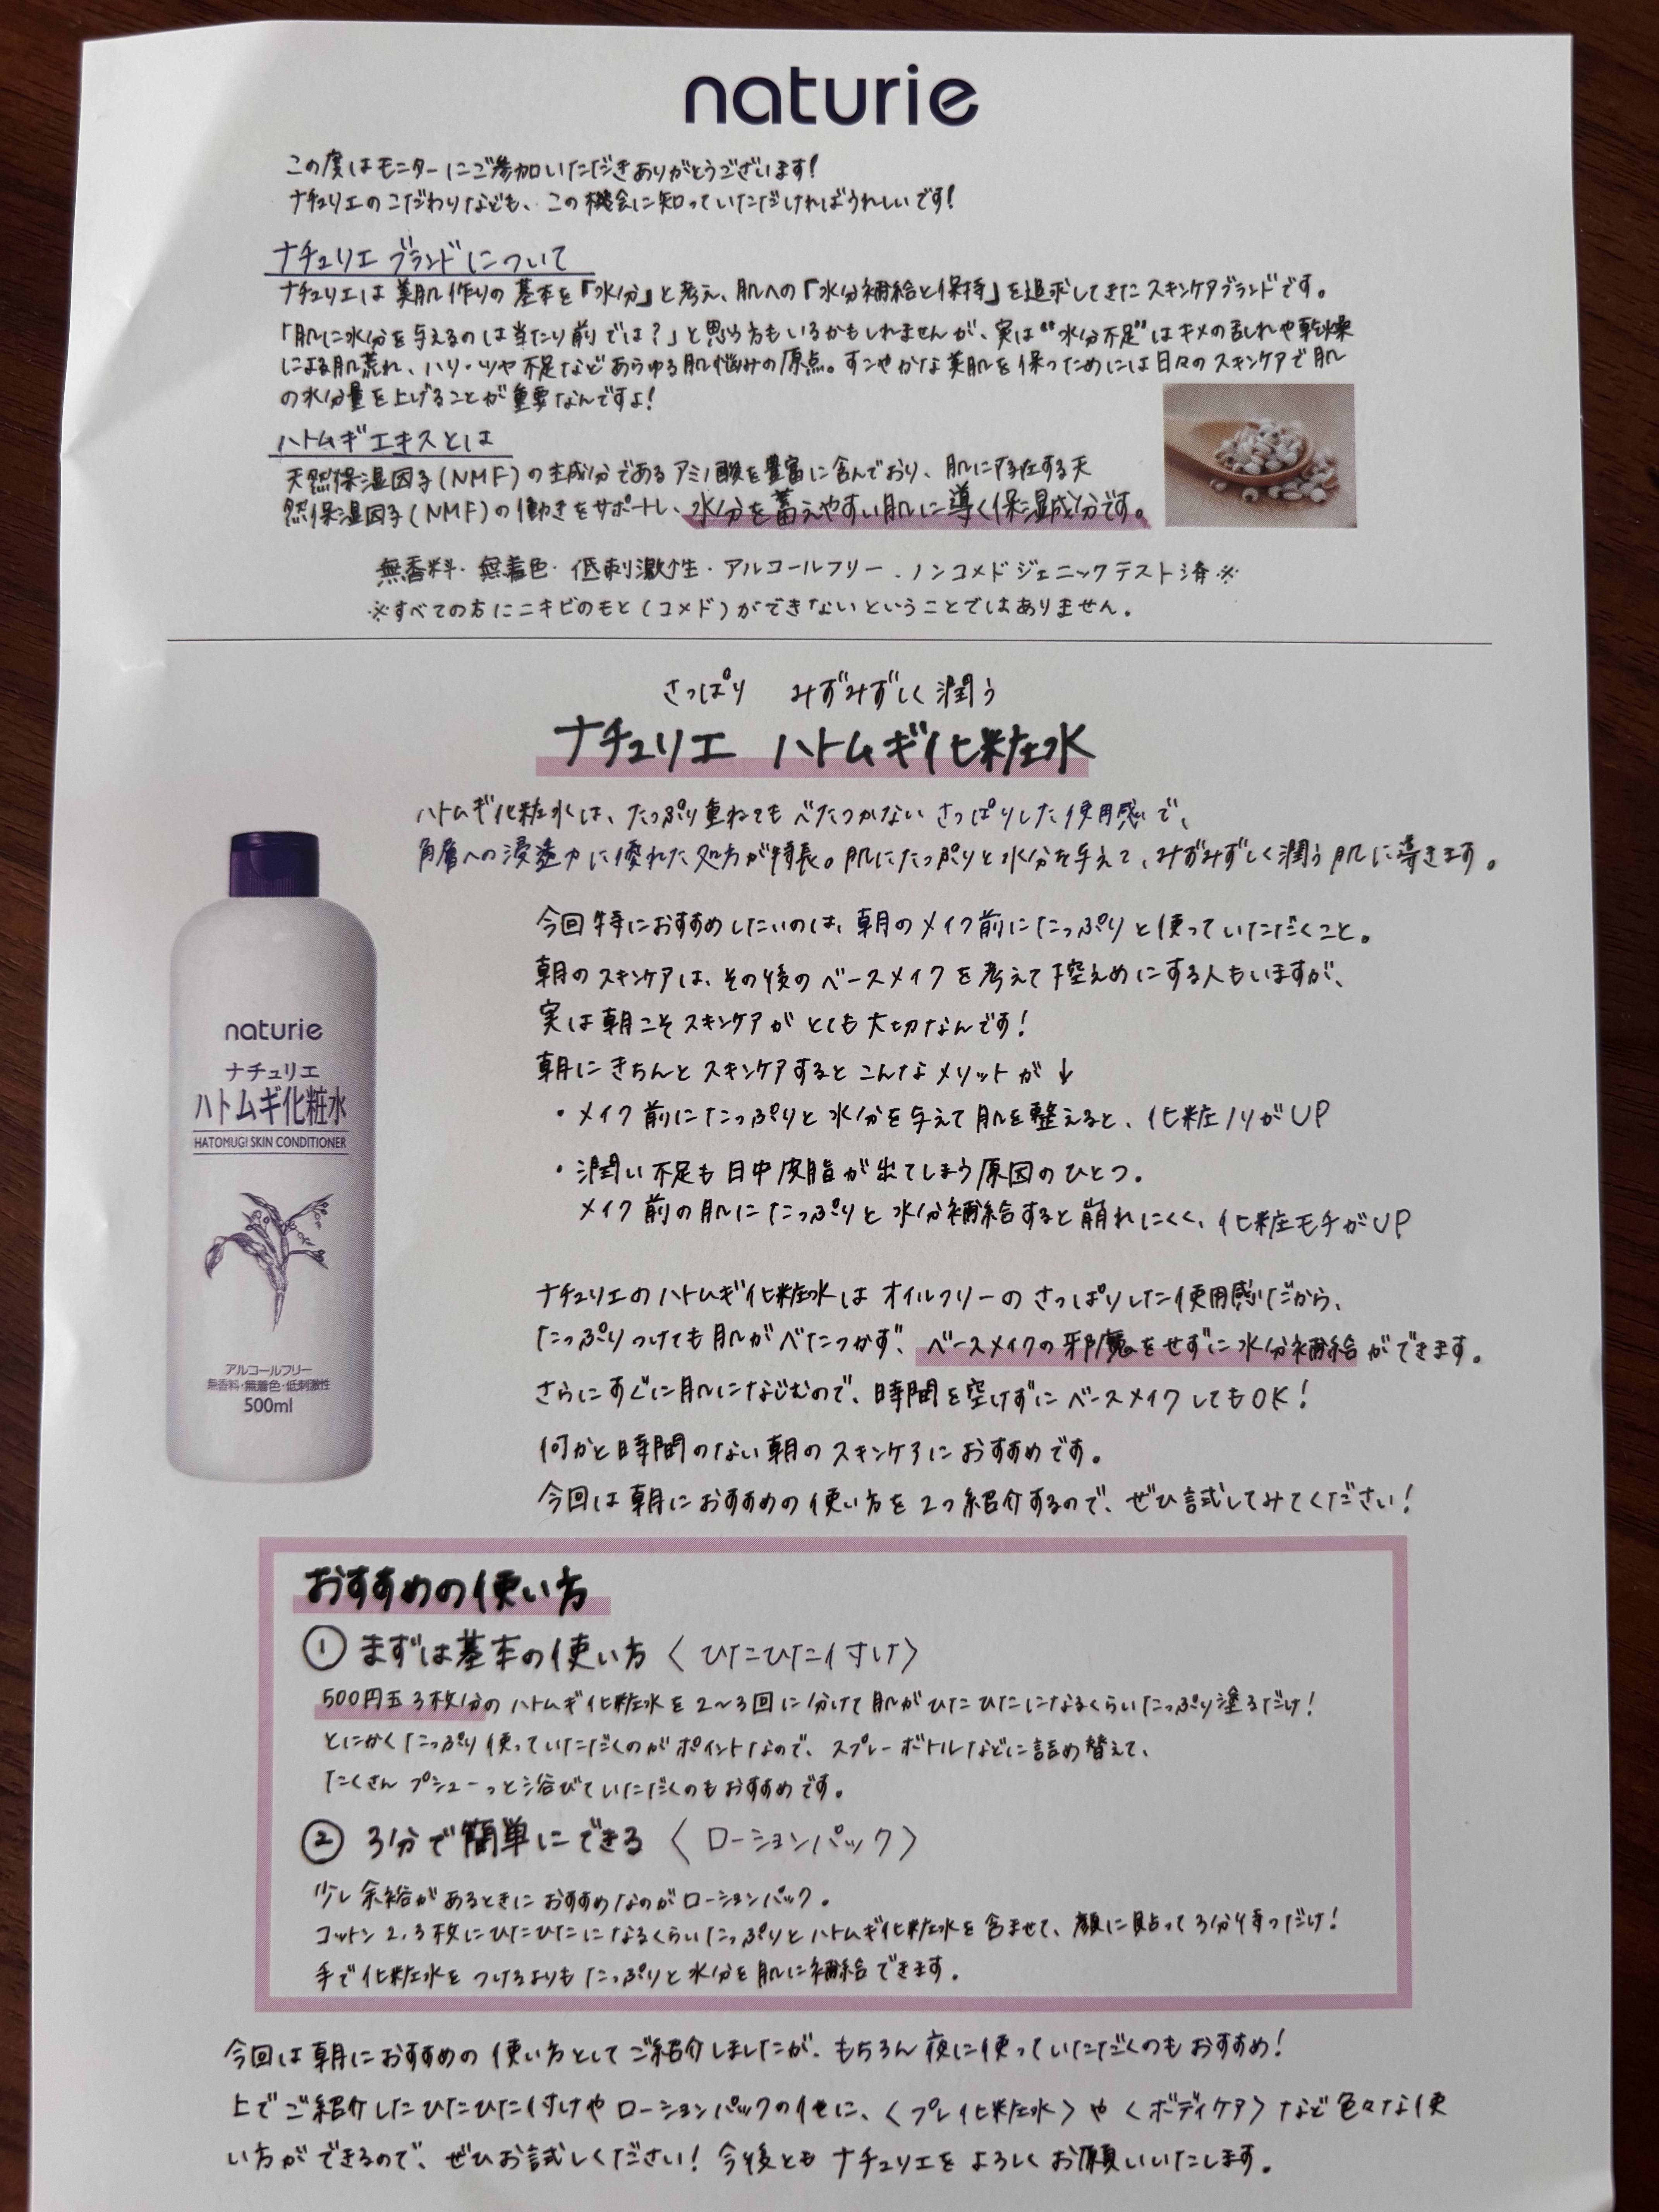 naturie
この度はモニターにご参加いただきありがとうございます!
ナチュリエのこだわりなども、この機会に知っていただければうれしいです!
ナチュリエ ブランドについて
ナチュリエは美肌作りの基本を「水分」と考え、肌への「水分補給と保持」を追求してきたスキンケアブランドです。
「肌に水分を与えるのは当たり前では?」と思う方もいるかもしれませんが、実は“水分不足”はキメの乱れや乾燥
による肌荒れ、ハリ・ツヤ不足などあらゆる肌悩みの原点。すこやかな美肌を保つためには日々のスキンケアで肌
の水分量を上げることが重要なんですよ!
ハトムギエキスとは
天然保湿因子(NMF)の主成分であるアミノ酸を豊富に含んでおり、肌に存在する天
然保湿因子(NMF)の働きをサポートし、水分を蓄えやすい肌に導く保湿成分です。
無香料・無着色・低刺激性・アルコールフリー・ノンコメドジェニックテスト済※
※すべての方にニキビのもと(コメド)ができないということではありません。
さっぱり みずみずしく潤う
ナチュリエ ハトムギ化粧水
ハトムギ化粧水は、たっぷり重ねてもべたつかないさっぱりした使用感で、
角層への浸透力に優れた処方が特長。肌にたっぷりと水分を与えて、みずみずしく潤う肌に導きます。
今回特におすすめしたいのは、朝のメイク前にたっぷりと使っていただくこと。
朝のスキンケアは、その後のベースメイクを考えて控えめにする人もいますが、
実は朝こそスキンケアがとても大切なんです!
朝にきちんとスキンケアするとこんなメリットが↓
・メイク前にたっぷりと水分を与えて肌を整えると、化粧ノリがUP
・潤い不足も日中皮脂が出てしまう原因のひとつ。
メイク前の肌にたっぷりと水分補給すると崩れにくく、化粧モチがUP
ナチュリエのハトムギ化粧水はオイルフリーのさっぱりした使用感だから、
たっぷりつけても肌がべたつかず、ベースメイクの邪魔をせずに水分補給ができます。
さらにすぐに肌になじむので、時間を空けずにベースメイクしてもOK!
何かと時間のない朝のスキンケアにおすすめです。
今回は朝におすすめの使い方を2つ紹介するので、ぜひ試してみてください!
naturie
ナチュリエ
ハトムギ化粧水
HATOMUGI SKIN CONDITIONER
アルコールフリー
無香料・無着色・低刺激性
500ml
おすすめの使い方
① まずは基本の使い方〈ひたひた付け〉
500円玉3枚分のハトムギ化粧水を2〜3回に分けて肌がひたひたになるくらいたっぷり塗るだけ!
とにかくたっぷり使っていただくのがポイントなので、スプレーボトルなどに詰め替えて、
たくさんプシューっと浴びていただくのもおすすめです。
② 3分で簡単にできる〈ローションパック〉
少し余裕があるときにおすすめなのがローションパック。
コットン2,3枚にひたひたになるくらいたっぷりとハトムギ化粧水を含ませて、顔に貼って3分待つだけ!
手で化粧水をつけるよりもたっぷりと水分を肌に補給できます。
今回は朝におすすめの使い方としてご紹介しましたが、もちろん夜に使っていただくのもおすすめ!
上でご紹介したひたひた付けやローションパックの他に、〈プレ化粧水〉や〈ボディケア〉など色々な使
い方ができるので、ぜひお試しください!今後ともナチュリエをよろしくお願いいたします。